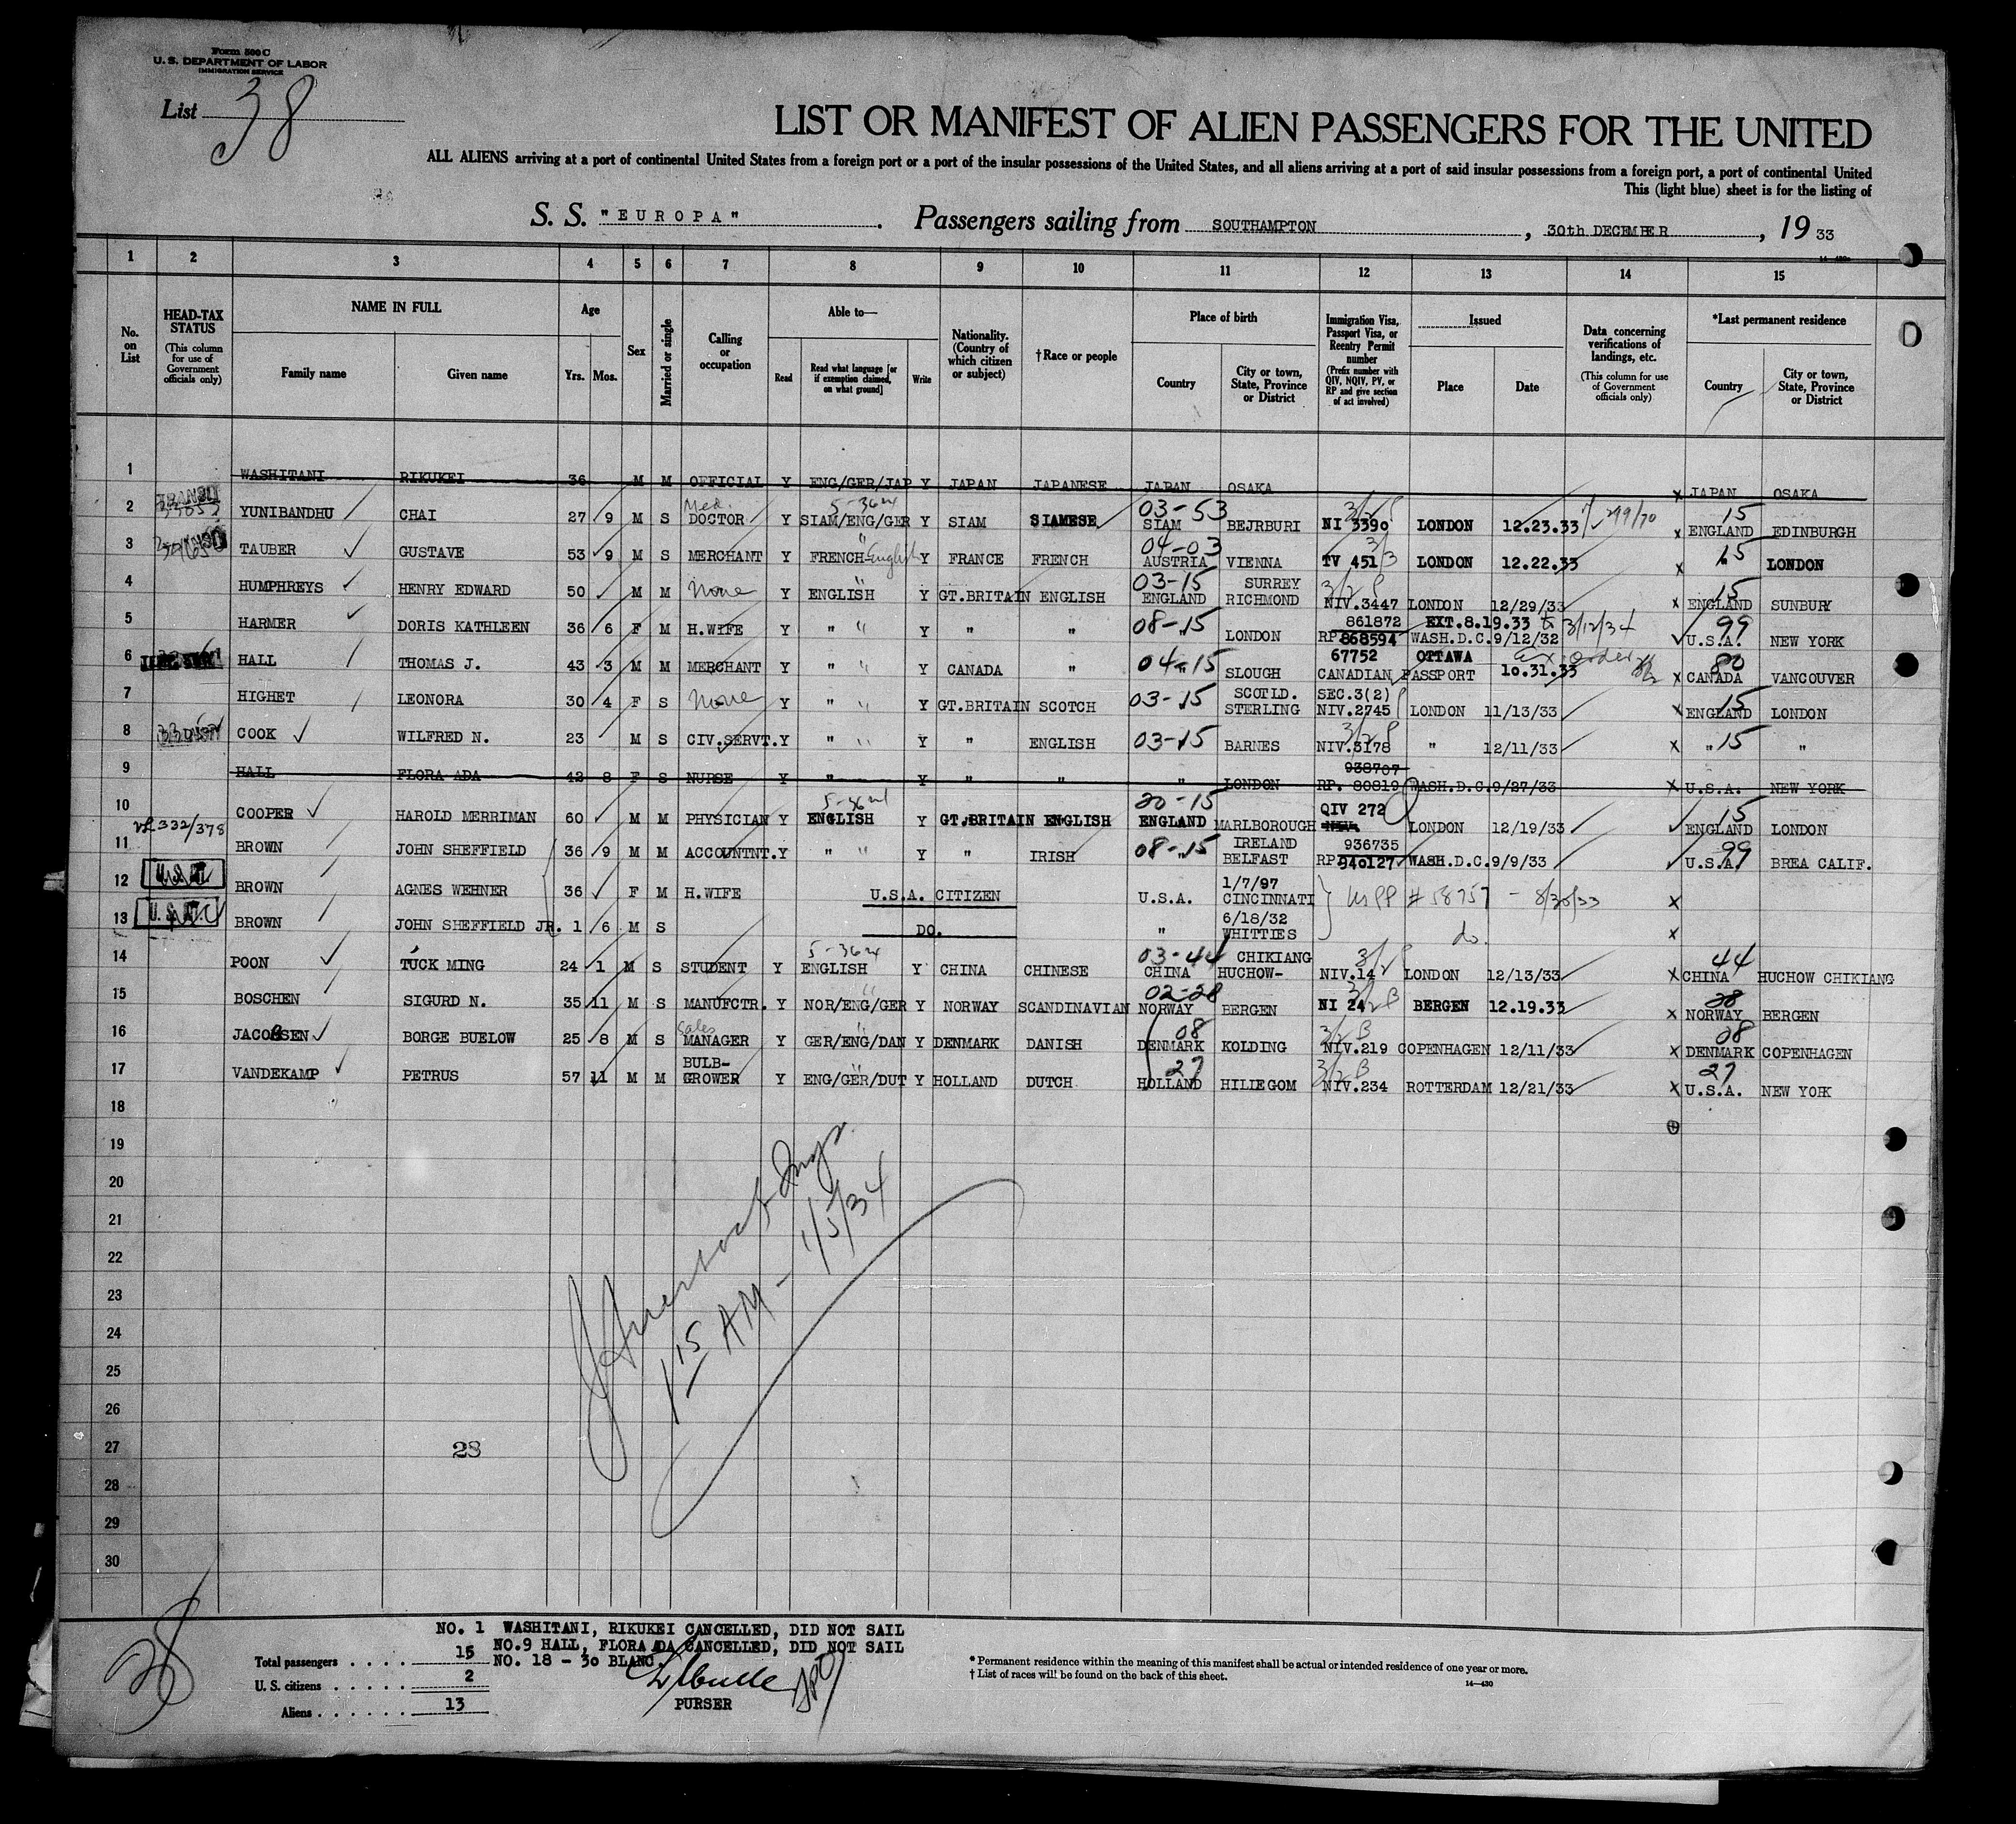 Form 500 C
U. S. DEPARTMENT OF LABOR
IMMIGRATION SERVICE
List 38
LIST OR MANIFEST OF ALIEN PASSENGERS FOR THE UNITED
ALL ALIENS arriving at a port of continental United States from a foreign port or a port of the insular possessions of the United States, and all aliens arriving at a port of said insular possessions from a foreign port, a port of continental United
This (light blue) sheet is for the listing of
S. S. "EUROPA". Passengers sailing from SOUTHAMPTON, 30th DECEMBER, 1933
14—430
1 2 3 4 5 6 7 8 9 10 11 12 13 14 15
No. on List
HEAD-TAX STATUS (This column for use of Government officials only)
NAME IN FULL
Family name
Given name
Age
Yrs. Mos.
Sex
Married or single
Calling or occupation
Able to—
Read
Read what language [or if exemption claimed, on what ground]
Write
Nationality. (Country of which citizen or subject)
†Race or people
Place of birth
Country
City or town, State, Province or District
Immigration Visa, Passport Visa, or Reentry Permit number (Prefix number with QIV, NQIV, PV, or RP and give section of act involved)
Issued
Place
Date
Data concerning verifications of landings, etc. (This column for use of Government officials only)
*Last permanent residence
Country
City or town, State, Province or District
1 WASHITANI RIKUKEI 36 M M OFFICIAL Y ENG/GER/JAP Y JAPAN JAPANESE JAPAN OSAKA x JAPAN OSAKA
2 TRANSIT YUNIBANDHU CHAI 27 9 M S Med. DOCTOR Y SIAM/ENG/GER Y SIAM SIAMESE 03-53 SIAM BEJRBURI NI 3390 LONDON 12.23.33 299/70 x 15 ENGLAND EDINBURGH
3 TAUBER GUSTAVE 53 9 M S MERCHANT Y FRENCH English Y FRANCE FRENCH 04-03 AUSTRIA VIENNA TV 451 LONDON 12.22.33 x 15 LONDON
4 HUMPHREYS HENRY EDWARD 50 M M None Y ENGLISH Y GT.BRITAIN ENGLISH 03-15 ENGLAND SURREY RICHMOND NIV.3447 LONDON 12/29/33 x 15 ENGLAND SUNBURY
5 HARMER DORIS KATHLEEN 36 6 F M H.WIFE Y " " Y " " 08-15 " LONDON 861872 RP.868594 EXT.8.19.33 to 3/12/34 WASH.D.C. 9/12/32 99 U.S.A. NEW YORK
6 HALL THOMAS J. 43 3 M M MERCHANT Y " " Y CANADA " 04-15 " SLOUGH 67752 CANADIAN PASSPORT OTTAWA 10.31.33 Ex. order x 80 CANADA VANCOUVER
7 HIGHET LEONORA 30 4 F S None Y " " Y GT.BRITAIN SCOTCH 03-15 " SCOTLD. STERLING SEC.3(2) NIV.2745 LONDON 11/13/33 x 15 ENGLAND LONDON
8 COOK WILFRED N. 23 M S CIV.SERVT. Y " " Y " ENGLISH 03-15 " BARNES NIV.3178 " 12/11/33 x " 15 "
9 HALL FLORA ADA 42 8 F S NURSE Y " Y " " " LONDON 938707 RP. 80819 WASH.D.C. 9/27/33 x U.S.A. NEW YORK
10 COOPER HAROLD MERRIMAN 60 M M PHYSICIAN Y ENGLISH Y GT.BRITAIN ENGLISH 20-15 ENGLAND MARLBOROUGH QIV 272 LONDON 12/19/33 15 ENGLAND LONDON
332/378
11 BROWN JOHN SHEFFIELD 36 9 M M ACCOUNTNT. Y " " Y " IRISH 08-15 " IRELAND BELFAST 936735 RP.940127 WASH.D.C. 9/9/33 99 U.S.A. BREA CALIF.
12 BROWN AGNES WEHNER 36 F M H.WIFE U.S.A. CITIZEN U.S.A. 1/7/97 CINCINNATI US PP #58757 - 8/30/33 x
13 BROWN JOHN SHEFFIELD JR. 1 6 M S DO. " 6/18/32 WHITTIES do. x
14 POON TUCK MING 24 1 M S STUDENT Y ENGLISH Y CHINA CHINESE 03-44 CHINA CHIKIANG HUCHOW- NIV.14 LONDON 12/13/33 x 44 CHINA HUCHOW CHIKIANG
15 BOSCHEN SIGURD N. 35 11 M S MANUFCTR. Y NOR/ENG/GER Y NORWAY SCANDINAVIAN 02-28 NORWAY BERGEN NI 24 BERGEN 12.19.33 x 28 NORWAY BERGEN
16 JACOBSEN BORGE BUELOW 25 8 M S Sales MANAGER Y GER/ENG/DAN Y DENMARK DANISH 08 DENMARK KOLDING NIV.219 COPENHAGEN 12/11/33 x 08 DENMARK COPENHAGEN
17 VANDEKAMP PETRUS 57 11 M M BULB-GROWER Y ENG/GER/DUT Y HOLLAND DUTCH 27 HOLLAND HILIEGOM NIV.234 ROTTERDAM 12/21/33 x 27 U.S.A. NEW YORK
18
19
20
21
22
23
24
25
26
27
28
29
30
1 15 AM - 1/5/34
28
38
NO. 1 WASHITANI, RIKUKEI CANCELLED, DID NOT SAIL
NO.9 HALL, FLORA ADA CANCELLED, DID NOT SAIL
NO. 18 - 30 BLANC.
Total passengers . . . . 15
U. S. citizens . . . . . 2
Aliens . . . . . . 13
PURSER
* Permanent residence within the meaning of this manifest shall be actual or intended residence of one year or more.
† List of races will be found on the back of this sheet.
14—430